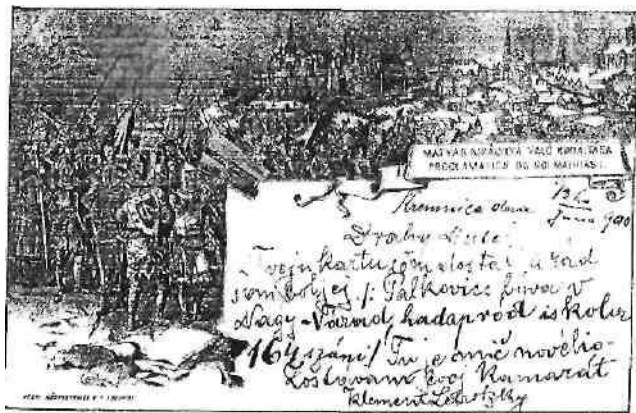 MAGYAR KIRÁLYLYÁ VALÓ KIKIÁLTÁSA
PROCLAMATION DU ROI MATHIAS I.
Kremnica dňa 13/6
Juna 900
Drahy
Tvoju kartu som dostal a rad
som bol jej /: Palkovics biva v
Nagy-Várad, hadapród iskola
164 szám!/ Tu je anič nového
Zostavam tvoj Kamarát
Klement